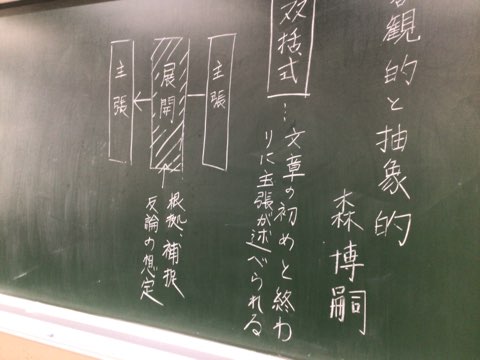 客観的と抽象的
森博嗣
双括式…文章の初めと終わ
りに主張が述べられる
主張
展開
主張
根拠・補捉
反論の想定